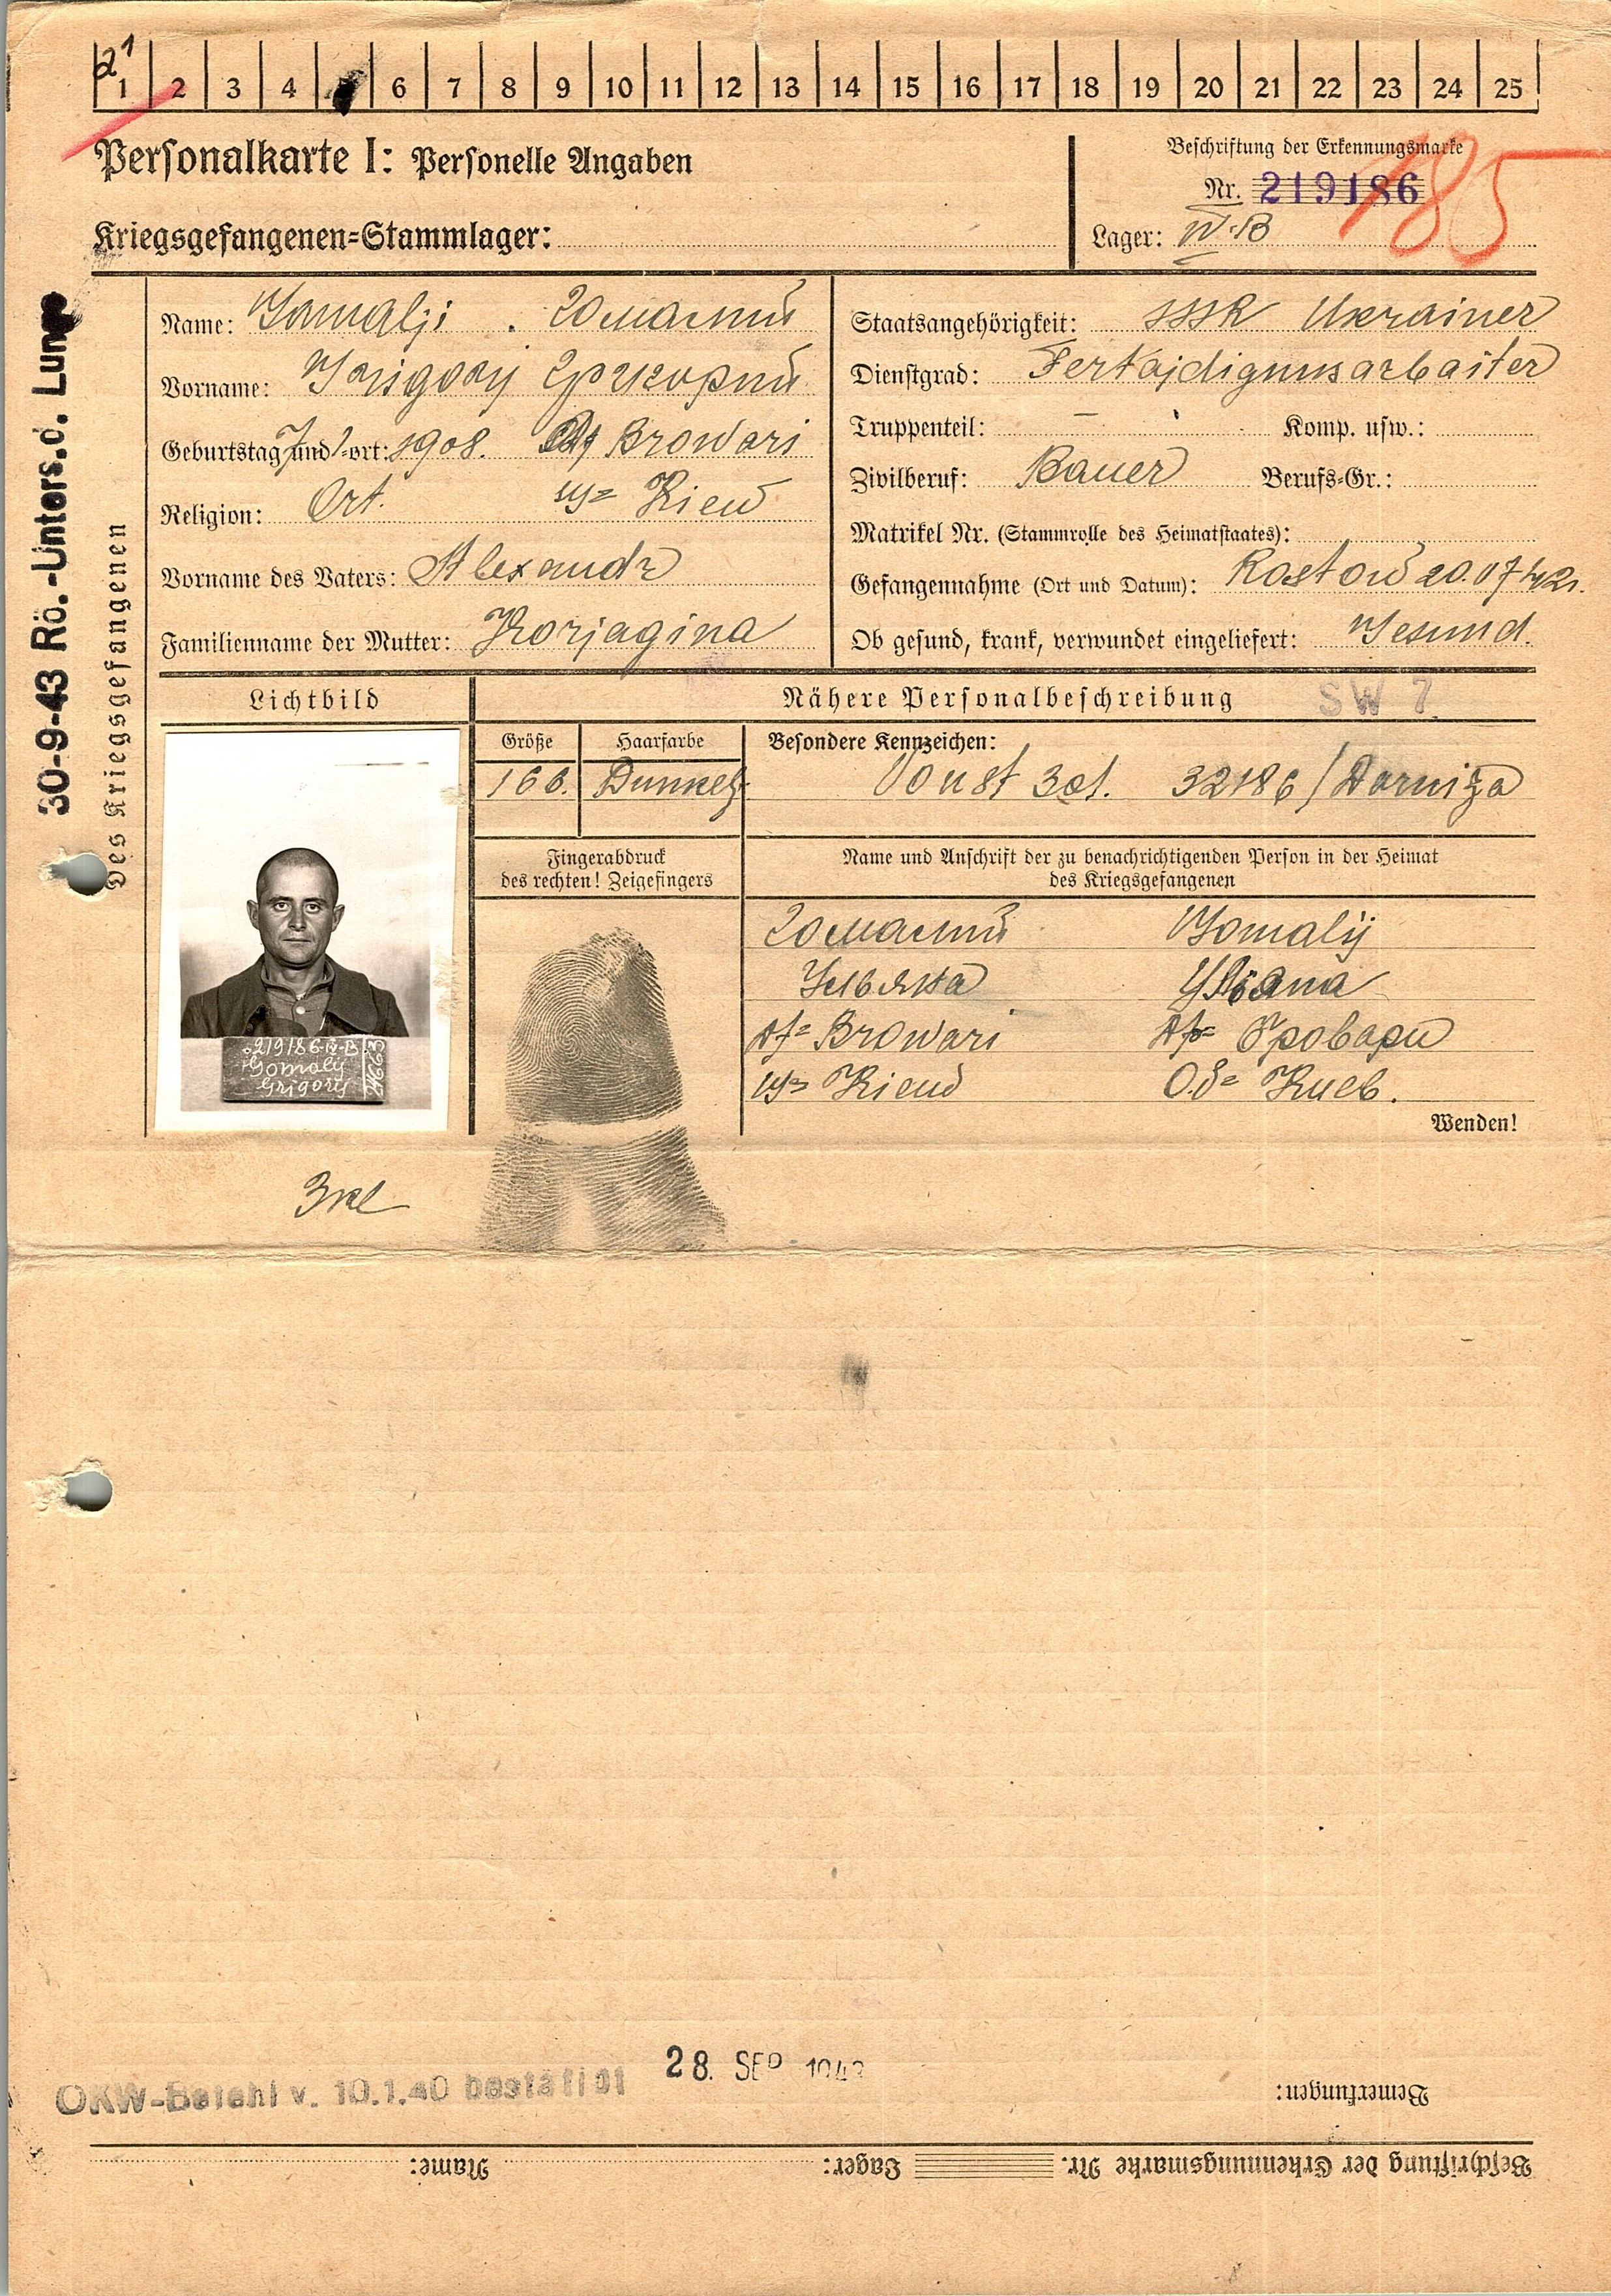 21
1 2 3 4 5 6 7 8 9 10 11 12 13 14 15 16 17 18 19 20 21 22 23 24 25
Personalkarte I: Personelle Angaben
Beschriftung der Erkennungsmarke
Nr. 219186
185
Kriegsgefangenen-Stammlager:
Lager: IV-B
30-9-43 Rö.-Unters.d. Lunge
Des Kriegsgefangenen
Name: Gomalji . Гомалий
Vorname: Grigorij Григорий
Geburtstag und -ort: 7/1 1908. Df Browari
Religion: Ort. Kiew
Vorname des Vaters: Alexandr
Familienname der Mutter: Korjagina
Staatsangehörigkeit: SSSR Ukrainer
Dienstgrad: Fertajdigunsarbaiter
Truppenteil: – Komp. usw.:
Zivilberuf: Bauer Berufs-Gr.:
Matrikel Nr. (Stammrolle des Heimatstaates):
Gefangennahme (Ort und Datum): Rostow 20.07.42.
Ob gesund, krank, verwundet eingeliefert: Gesund.
Lichtbild
Nähere Personalbeschreibung SW 7
Größe Haarfarbe Besondere Kennzeichen:
166. Dunkel. 32186/Darniza
Fingerabdruck
des rechten! Zeigefingers
Name und Anschrift der zu benachrichtigenden Person in der Heimat
des Kriegsgefangenen
Гомалий Gomalij
Df= Browari Бровари
Kiew Об= Киев.
Wenden!
219186-IV-B
Gomalij
Grigorij
24663
OKW-Befehl v. 10.1.40 bestätigt
28. SEP 1943
Bemerkungen:
Beschriftung der Erkennungsmarke Nr. Lager: Name: